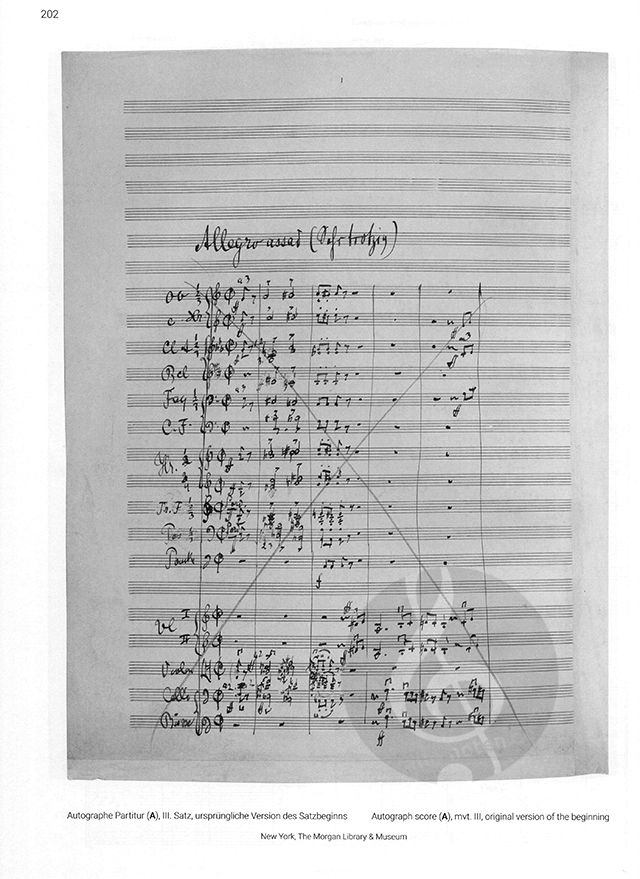 202
1
Allegro assai (Sehr trotzig)
Ob 1/2
a 3
Cl
Bcl
Fag 1/2
a 3
C. F.
Hr.
Tr. F
Pos
Pauke
f
Vl I
II
Violen
Celli
Bässe
ff
Autographe Partitur (A), III. Satz, ursprüngliche Version des Satzbeginns
Autograph score (A), mvt. III, original version of the beginning
New York, The Morgan Library & Museum